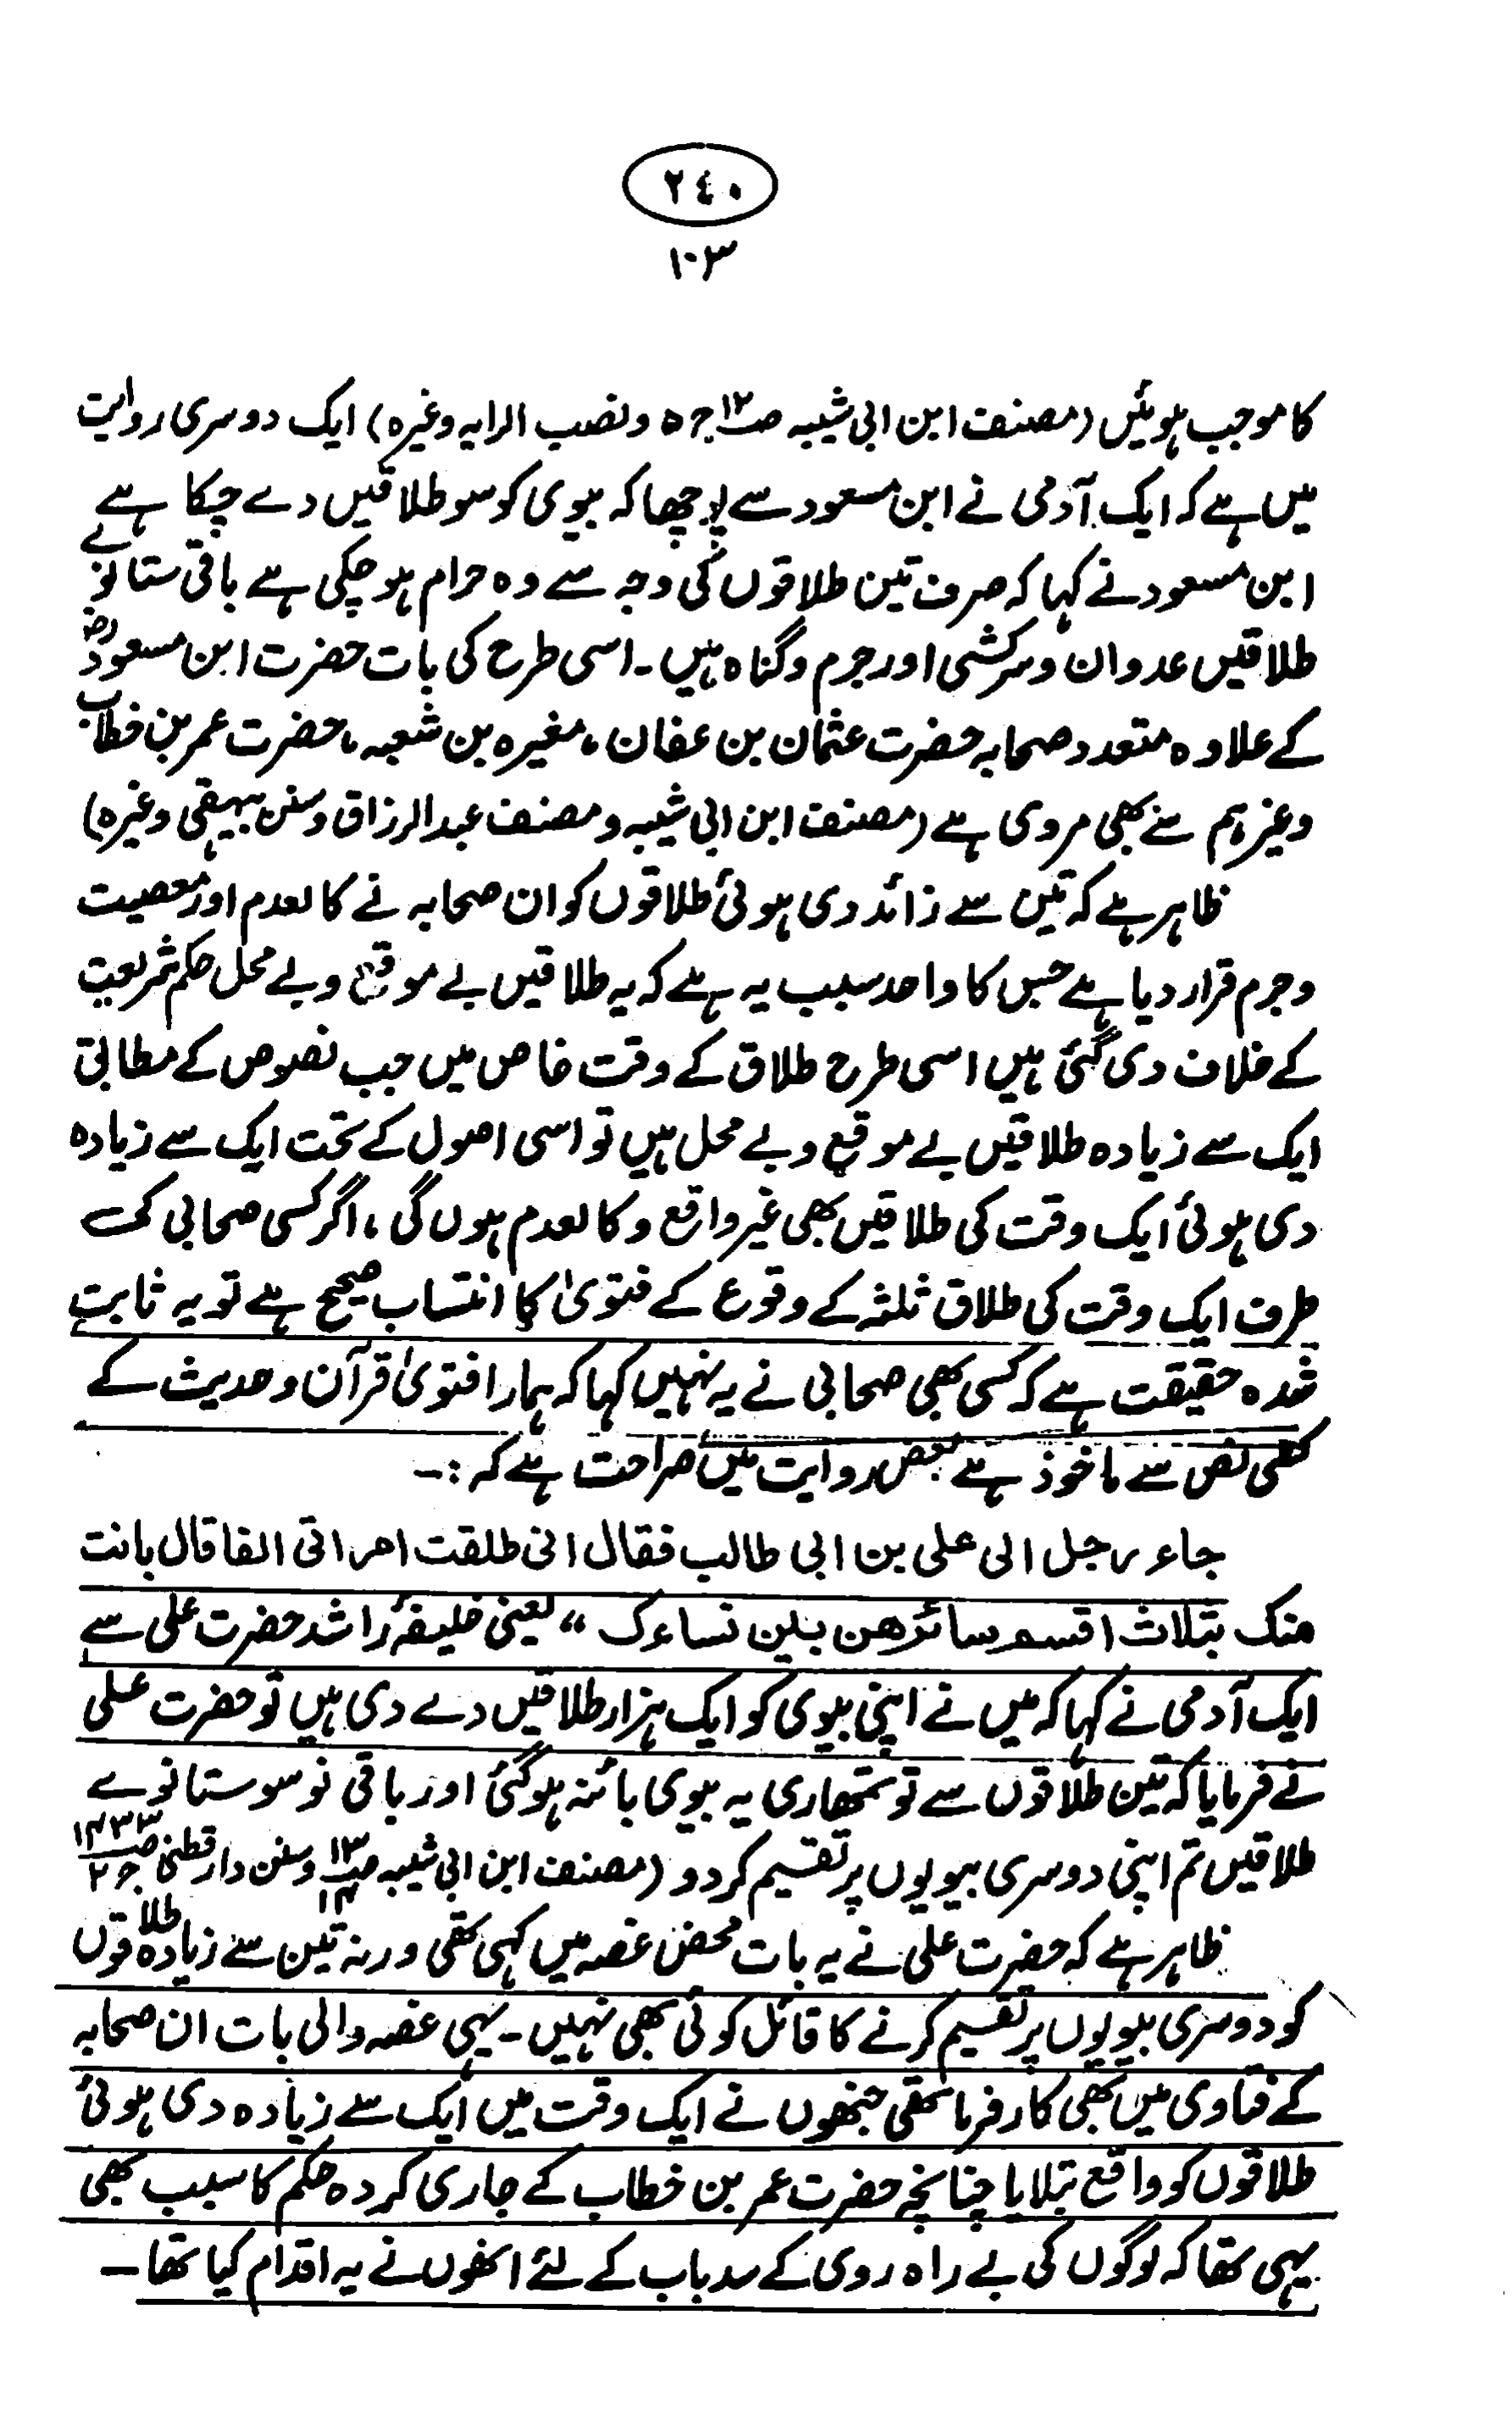 ٢٤٠
١٠٣
کا موجب ہوئیں (مصنف ابن ابی شیبہ صـ١٢ ج ٥ ونصب الرایہ وغیرہ) ایک دوسری روایت
میں ہے کہ ایک آدمی نے ابن مسعود سے پوچھا کہ بیوی کو سو طلاقیں دے چکا ہے
ابن مسعود نے کہا کہ صرف تین طلاقوں کی وجہ سے وہ حرام ہو چکی ہے باقی ستانوے
طلاقیں عدوان وسرکشی اور جرم وگناہ ہیں۔ اسی طرح کی بات حضرت ابن مسعودؓ
کے علاوہ متعدد صحابہ حضرت عثمان بن عفان، مغیرہ بن شعبہ، حضرت عمر بن خطاب
وغیرہم سے بھی مروی ہے (مصنف ابن ابی شیبہ ومصنف عبدالرزاق وسنن بیہقی وغیرہ)
ظاہر ہے کہ تین سے زائد دی ہوئی طلاقوں کو ان صحابہ نے کالعدم اور معصیت
وجرم قرار دیا ہے جس کا واحد سبب یہ ہے کہ یہ طلاقیں بے موقع وبے محل حکم شریعت
کے خلاف دی گئی ہیں اسی طرح طلاق کے وقت خاص میں جب نصوص کے مطابق
ایک سے زیادہ طلاقیں بے موقع وبے محل ہیں تو اسی اصول کے تحت ایک سے زیادہ
دی ہوئی ایک وقت کی طلاقیں بھی غیر واقع وکالعدم ہوں گی، اگر کسی صحابی کی
طرف ایک وقت کی طلاق ثلثہ کے وقوع کے فتویٰ کا انتساب صحیح ہے تو یہ ثابت
شدہ حقیقت ہے کہ کسی بھی صحابی نے یہ نہیں کہا کہ ہمارا فتویٰ قرآن وحدیث کے
کسی نص سے ماخوذ ہے بعض روایت میں صراحت ہے کہ :۔
جاء رجل الی علی بن ابی طالب فقال انی طلقت امراتی الفا قال بانت
منک بثلاث اقسم سائرھن بین نساءک ،، یعنی خلیفۂ راشد حضرت علی سے
ایک آدمی نے کہا کہ میں نے اپنی بیوی کو ایک ہزار طلاقیں دے دی ہیں تو حضرت علی
نے فرمایا کہ تین طلاقوں سے تو تمھاری یہ بیوی بائنہ ہو گئی اور باقی نو سو ستانوے
طلاقیں تم اپنی دوسری بیویوں پر تقسیم کر دو (مصنف ابن ابی شیبہ صـ١٣ ١٤ وسنن دارقطنی صـ٤٣٣ ج ٢
ظاہر ہے کہ حضرت علی نے یہ بات محض غصہ میں کہی تھی ورنہ تین سے زیادہ طلاقوں
کو دوسری بیویوں پر تقسیم کرنے کا قائل کوئی بھی نہیں۔ یہی غصہ والی بات ان صحابہ
کے فتاوی میں بھی کارفرما تھی جنھوں نے ایک وقت میں ایک سے زیادہ دی ہوئی
طلاقوں کو واقع بتلایا چنانچہ حضرت عمر بن خطاب کے جاری کردہ حکم کا سبب بھی
یہی تھا کہ لوگوں کی بے راہ روی کے سدباب کے لئے انھوں نے یہ اقدام کیا تھا۔